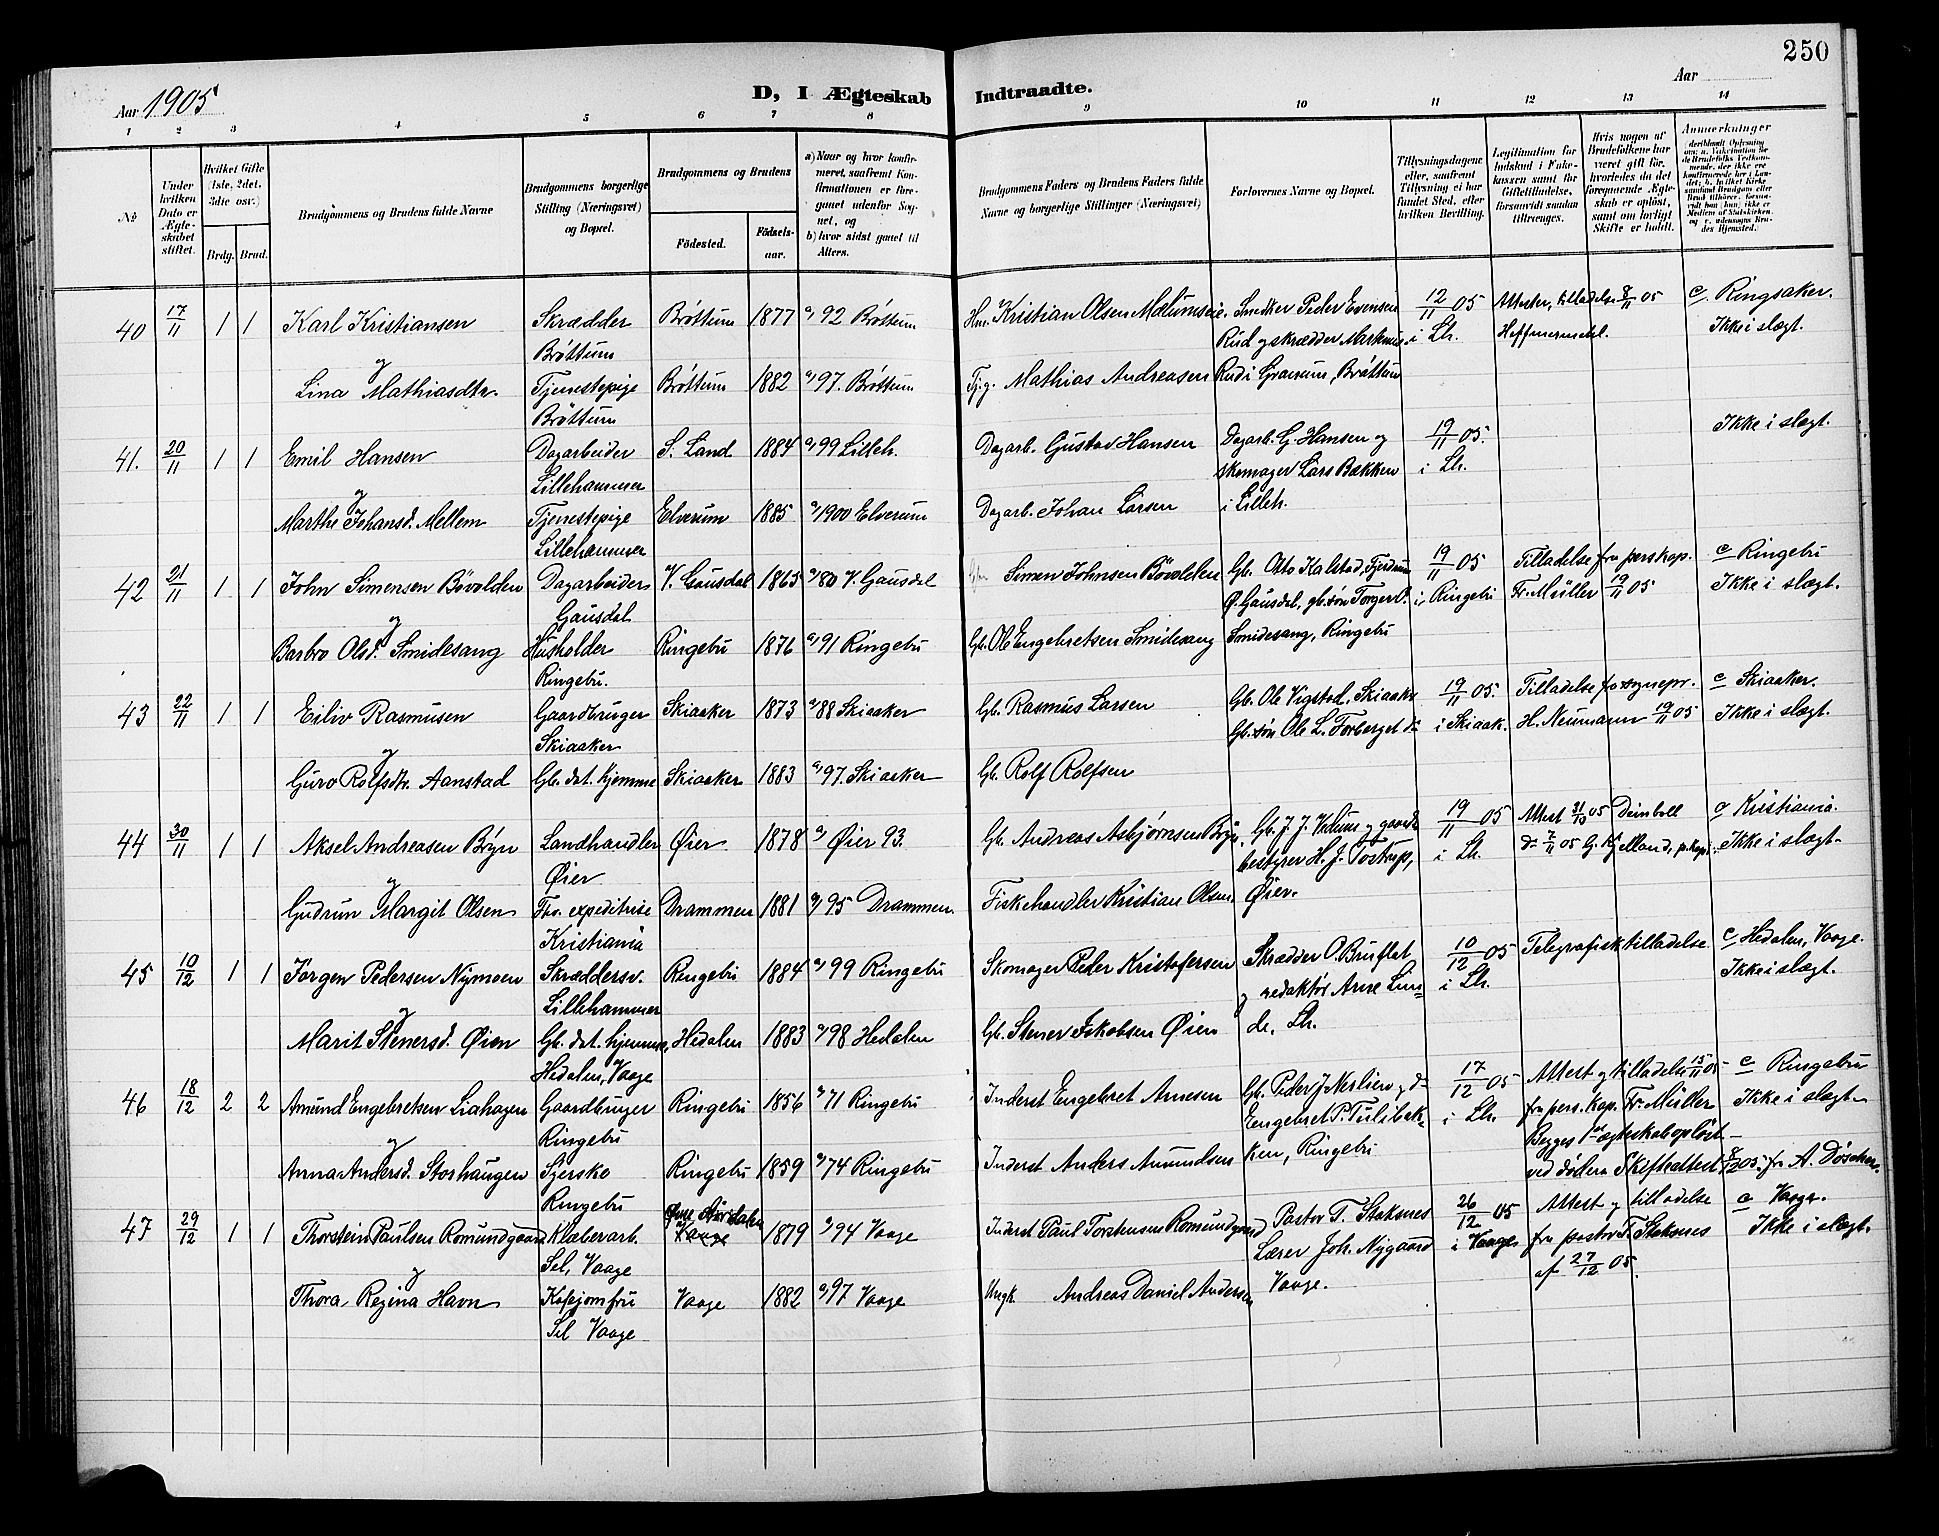 250
Aar 1905
D, I Ægteskab Indtraadte.
Aar
1 2 3 4 5 6 7 8 9 10 11 12 13 14
No
Under hvilken Dato er Ægteskabet stiftet.
Hvilket Gifte (1ste, 2det, 3die osv.)
Brdg. Brud.
Brudgommens og Brudens fulde Navne
Brudgommens borgerlige Stilling (Næringsvei) og Bopæl.
Brudgommens og Brudens
Födested.
Födsels-aar.
a) Naar og hvor konfirmeret, saafremt Konfirmationen er foregaaet udenfor Sognet, og
b) hvor sidst gaaet til Alters.
Brudgommens Faders og Brudens Faders fulde Navne og borgerlige Stillinger (Næringsvei)
Forlovernes Navne og Bopæl.
Tillysningsdagene eller, saafremt Tillysning ei har fundet Sted, efter hvilken Bevilling.
Legitimation for Indskud i Enkekassen samt for Giftetilladelse, forsaavidt saadan tiltrænges.
Hvis nogen af Brudefolkene har været gift för, hvorledes da det foregaaende Ægteskab er oplöst, samt om lovligt Skifte er holdt.
Anmærkninger
40 17/11 1 1 Karl Kristiansen Skrædder Brøttum 1877 a) 92 Brøttum Hm. Kristian Olsen Mælumseie. Smdker Peder Evensen 12/11 05 Attester, tilladelse 8/11 05 c Ringsaker.
Brøttum Rud og skrædder Markus i Lh. Heffermehl. Ikke i slegt.
og
Lina Mathiasdtr. Tjenestepige Brøttum 1882 a) 97. Brøttum Tjg. Mathias Andreasen Rud i Graarum, Brøttum
Brøttum
41. 20/11 1 1 Emil Hansen Dagarbeider S. Land 1884 a) 99 Lilleh. Dagarb. Gustav Hansen Dagarb. G. Hansen og 19/11 05. Ikke i slegt.
Lillehammer skomager Lars Bækken i Lh.
og
Marthe Johansd. Mellem Tjenestepige Elverum 1885 a) 1900 Elverum Dagarb. Johan Larsen i Lilleh.
Lillehammer
42 21/11 1 1 John Simensen Bövolden Dagarbeider V. Gausdal 1865 a) 80 V. Gausdal Simen Johnsen Bövolden Gb. Otto Kalstad, Fjerdum 19/11 05 Tilladelse fra perskap. c Ringebu
Gausdal Ø. Gausdal, gb. søn Torger O. i Ringebu Fr. Müller 19/11 05 Ikke i slegt.
og
Barbro Olsd. Smidesang Husholder Ringebu 1876 a) 91 Ringebu Gb. Ole Engebretsen Smidesang Smidesang, Ringebu
Ringebu.
43 22/11 1 1 Eiliv Rasmusen Gaardbruger Skiaaker 1873 a) 88 Skiaaker Gb. Rasmus Larsen Gb. Ole Vigstad, Skiaaker 19/11 05. Tilladelse fra sognepr. c Skiaaker.
Skiaaker Gb. søn Ole L. Forberget do i Skiaak. H. Neumann 19/11 05 Ikke i slegt.
og
Guro Rolfsdtr. Aanstad Gb. dat. hjemme Skiaaker 1883 a) 97. Skiaaker Gb. Rolf Rolfsen
44 30/11 1 1 Aksel Andreasen Bryn Landhandler Øier. 1878 a) Øier 93. Gb. Andreas Asbjørnsen Bryn. Gb. J. J. Vedum og gaards- 19/11 05 Attest 31/10 05 Deinboll c Kristiania.
Øier bestyrer H. J. Tostrup, i Lh. do 7/11 05 G. Kjelland, p. kap. Ikke i slegt.
og
Gudrun Margit Olsen Fhv. expeditrise Drammen 1881 a) 95 Drammen. Fiskehandler Kristian Olsen. Øier.
Kristiania
45 10/12 1 1 Jörgen Pedersen Nymoen Skræddersv. Ringebu 1884 a) 99 Ringebu Skomager Peder Kristofersen Skrædder O. Bruflat 10/12 05 Telegrafisk tilladelse c Hedalen, Vaage.
Lillehammer og redaktör Arne Lun- i Lh. Ikke i slegt.
og
Marit Stenersd. Øien Gb. dat. hjemme, Hedalen 1883 a) 98 Hedalen Gb. Stener Jakobsen Øien de. Lh.
Hedalen, Vaage
46 18/12 2 2 Amund Engebretsen Liahagen Gaardbruger Ringebu 1856 a) 71 Ringebu Inderst Engebret Arnesen Gb. Peder J. Nerlien og do 17/12 05 Attest og tilladelse 15/11 05 c Ringebu
Ringebu Engebret P. Tulibak- i Lh. fra pers. kap. Fr. Müller Ikke i slegt.
og Begges 1ste ægteskab oplöst
Anna Andersd. Storhaugen Syerske Ringebu 1859 a) 74 Ringebu Inderst. Anders Amundsen ken, Ringebu ved döden Skifteattest 8/12 05 fra A. Döscher.
Ringebu
47 29/12 1 1 Thorstein Paulsen Romundgaard Klæberarb. Vaage 1879 a) 94 Vaage Inderst Paul Torstensen Romundgaard Pastor T. Stoksnes 26/12 05 Attest og tilladelse c Vaage.
Sel, Vaage Lærer Joh. Nygaard i Vaage fra pastor T. Stoksnes Ikke i slegt.
og af 27/12 05.
Thora Regina Havn Kafejomfru Vaage 1882 a) 97 Vaage Ungk. Andreas Daniel Andersen Vaage.
Sel Vaage